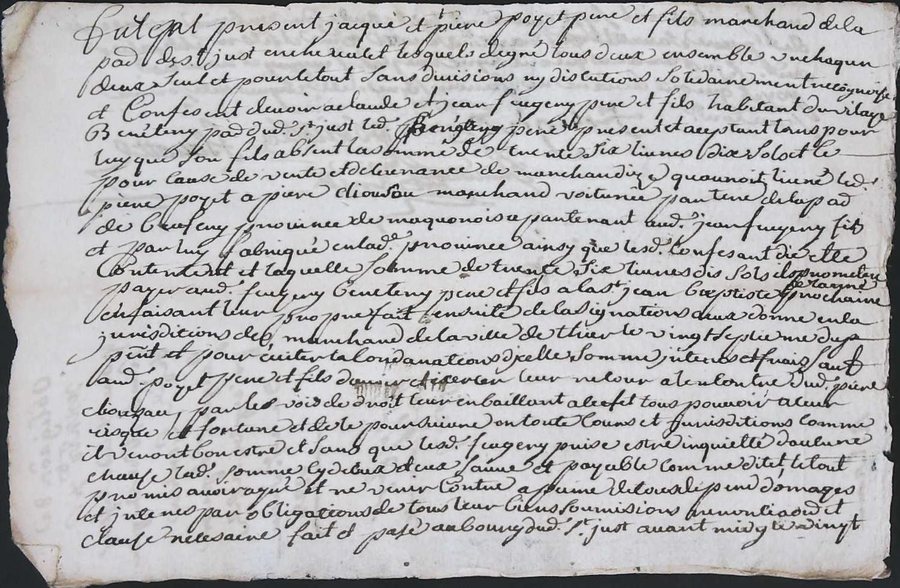 fut est present jacque et piere poyet pere et fils marchand de la
paд de st just en chevalet lesquels de gré tous deux ensemble un chaqun
deux seul et pour le tout sans divisions ny discutions solidairement
et confesent devoir a claude et jean fugeny pere et fils habitant du vilage
paд dud. st just led. pere present et aceptant tans pour
luy que son fils absent la somme de trente six livres dix sols et le
pour cause de vente et delivrance de marchandize quauroit livré led.
piere poyet a piere marchand voiturié par tere de la paд
de provinee de maquonois apartenant aud. jean fugeny fils
et par luy fabriqué en lad. province ainsy que lesd. confesant
contentent et laquelle somme de trente six livres dis sols ils prometent
payer aud. fugeny pere et fils a la st jean baptiste prochaine
en faisant leur propre fait ensuite de la signations aux donne en la
jurisditions de marchand de la ville de thier le vingt septieme du
pnt et pour eviter la condanations dycelle somme interes et frais sauf
aud. poyet pere et fils leur retour a lencontre dud. piere
par les vois de droit leur en baillant a leefit tous pouvoir a leur
risque et fortune et de le poursuivre en toute cours et jurisditions comme
il veront bon estre et sans que lesd. fugeny puise estre inquiette daucune
chause lad. somme sauve et payable comme dit le tout
promis avoir agreé et ne venir contre a peine de tous depend domages
et interes par obligations de tous leur biens soumisions renontiaons et
clause nécesaire fait et pasé au bourg dud. st just avant midy le vingt